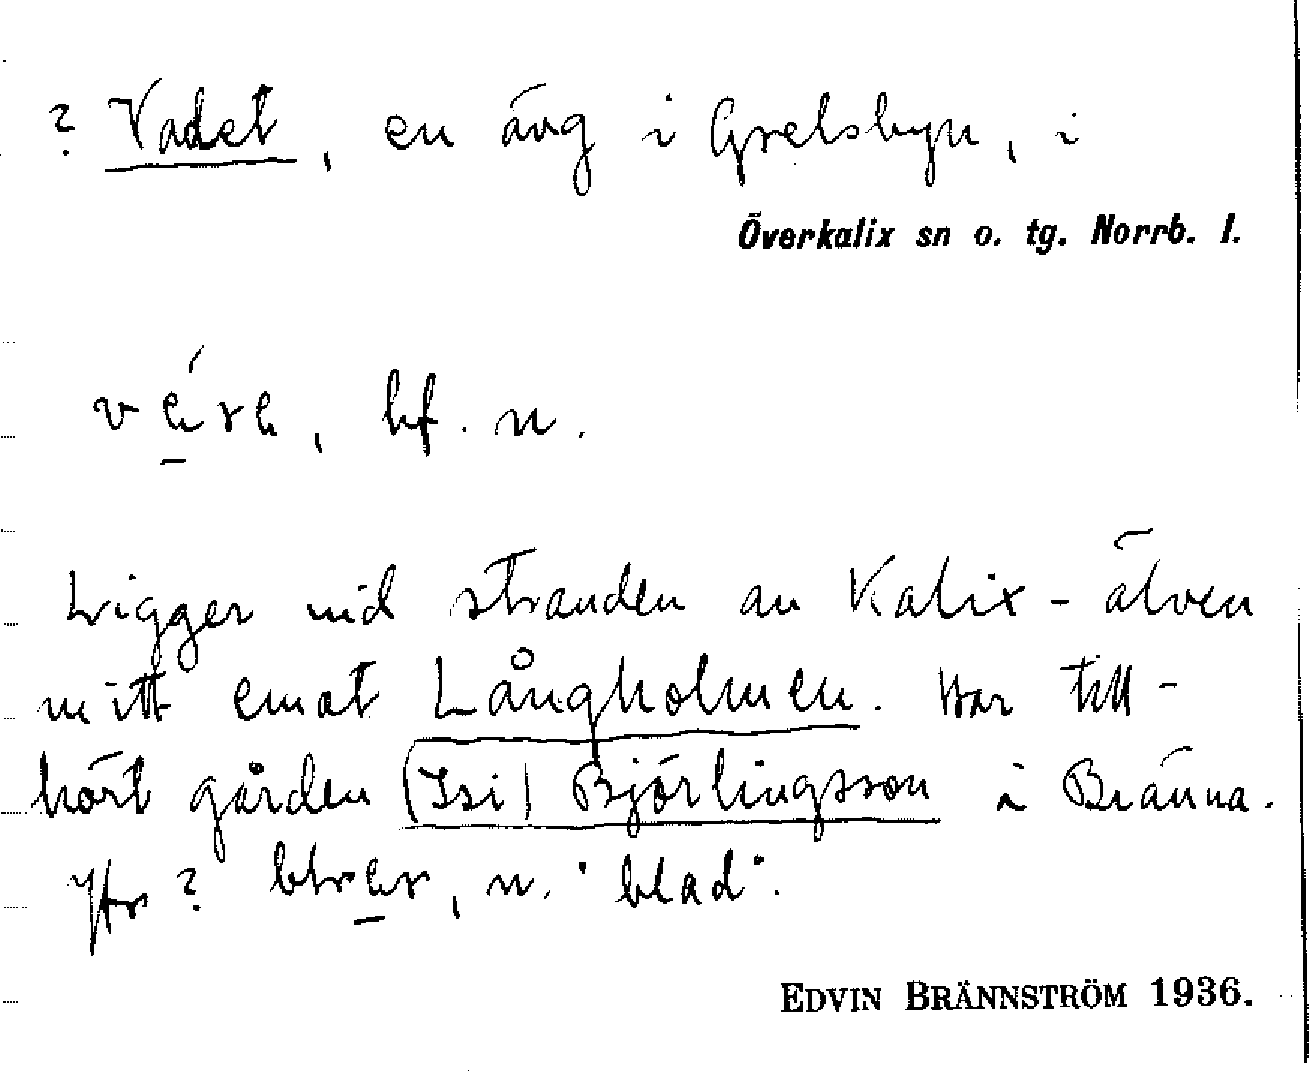 ? Vadet, en ävg i Grelsbyn, i
Överkalix sn o. tg. Norrb. l.
bf. n.
Ligger vid stranden av Kalix-älven
mitt emot Långholmen. Har till-
hört gården (Isi) Björlingsson i Bränna.
Jfr ? n. "blad".
EDVIN BRÄNNSTRÖM 1936.